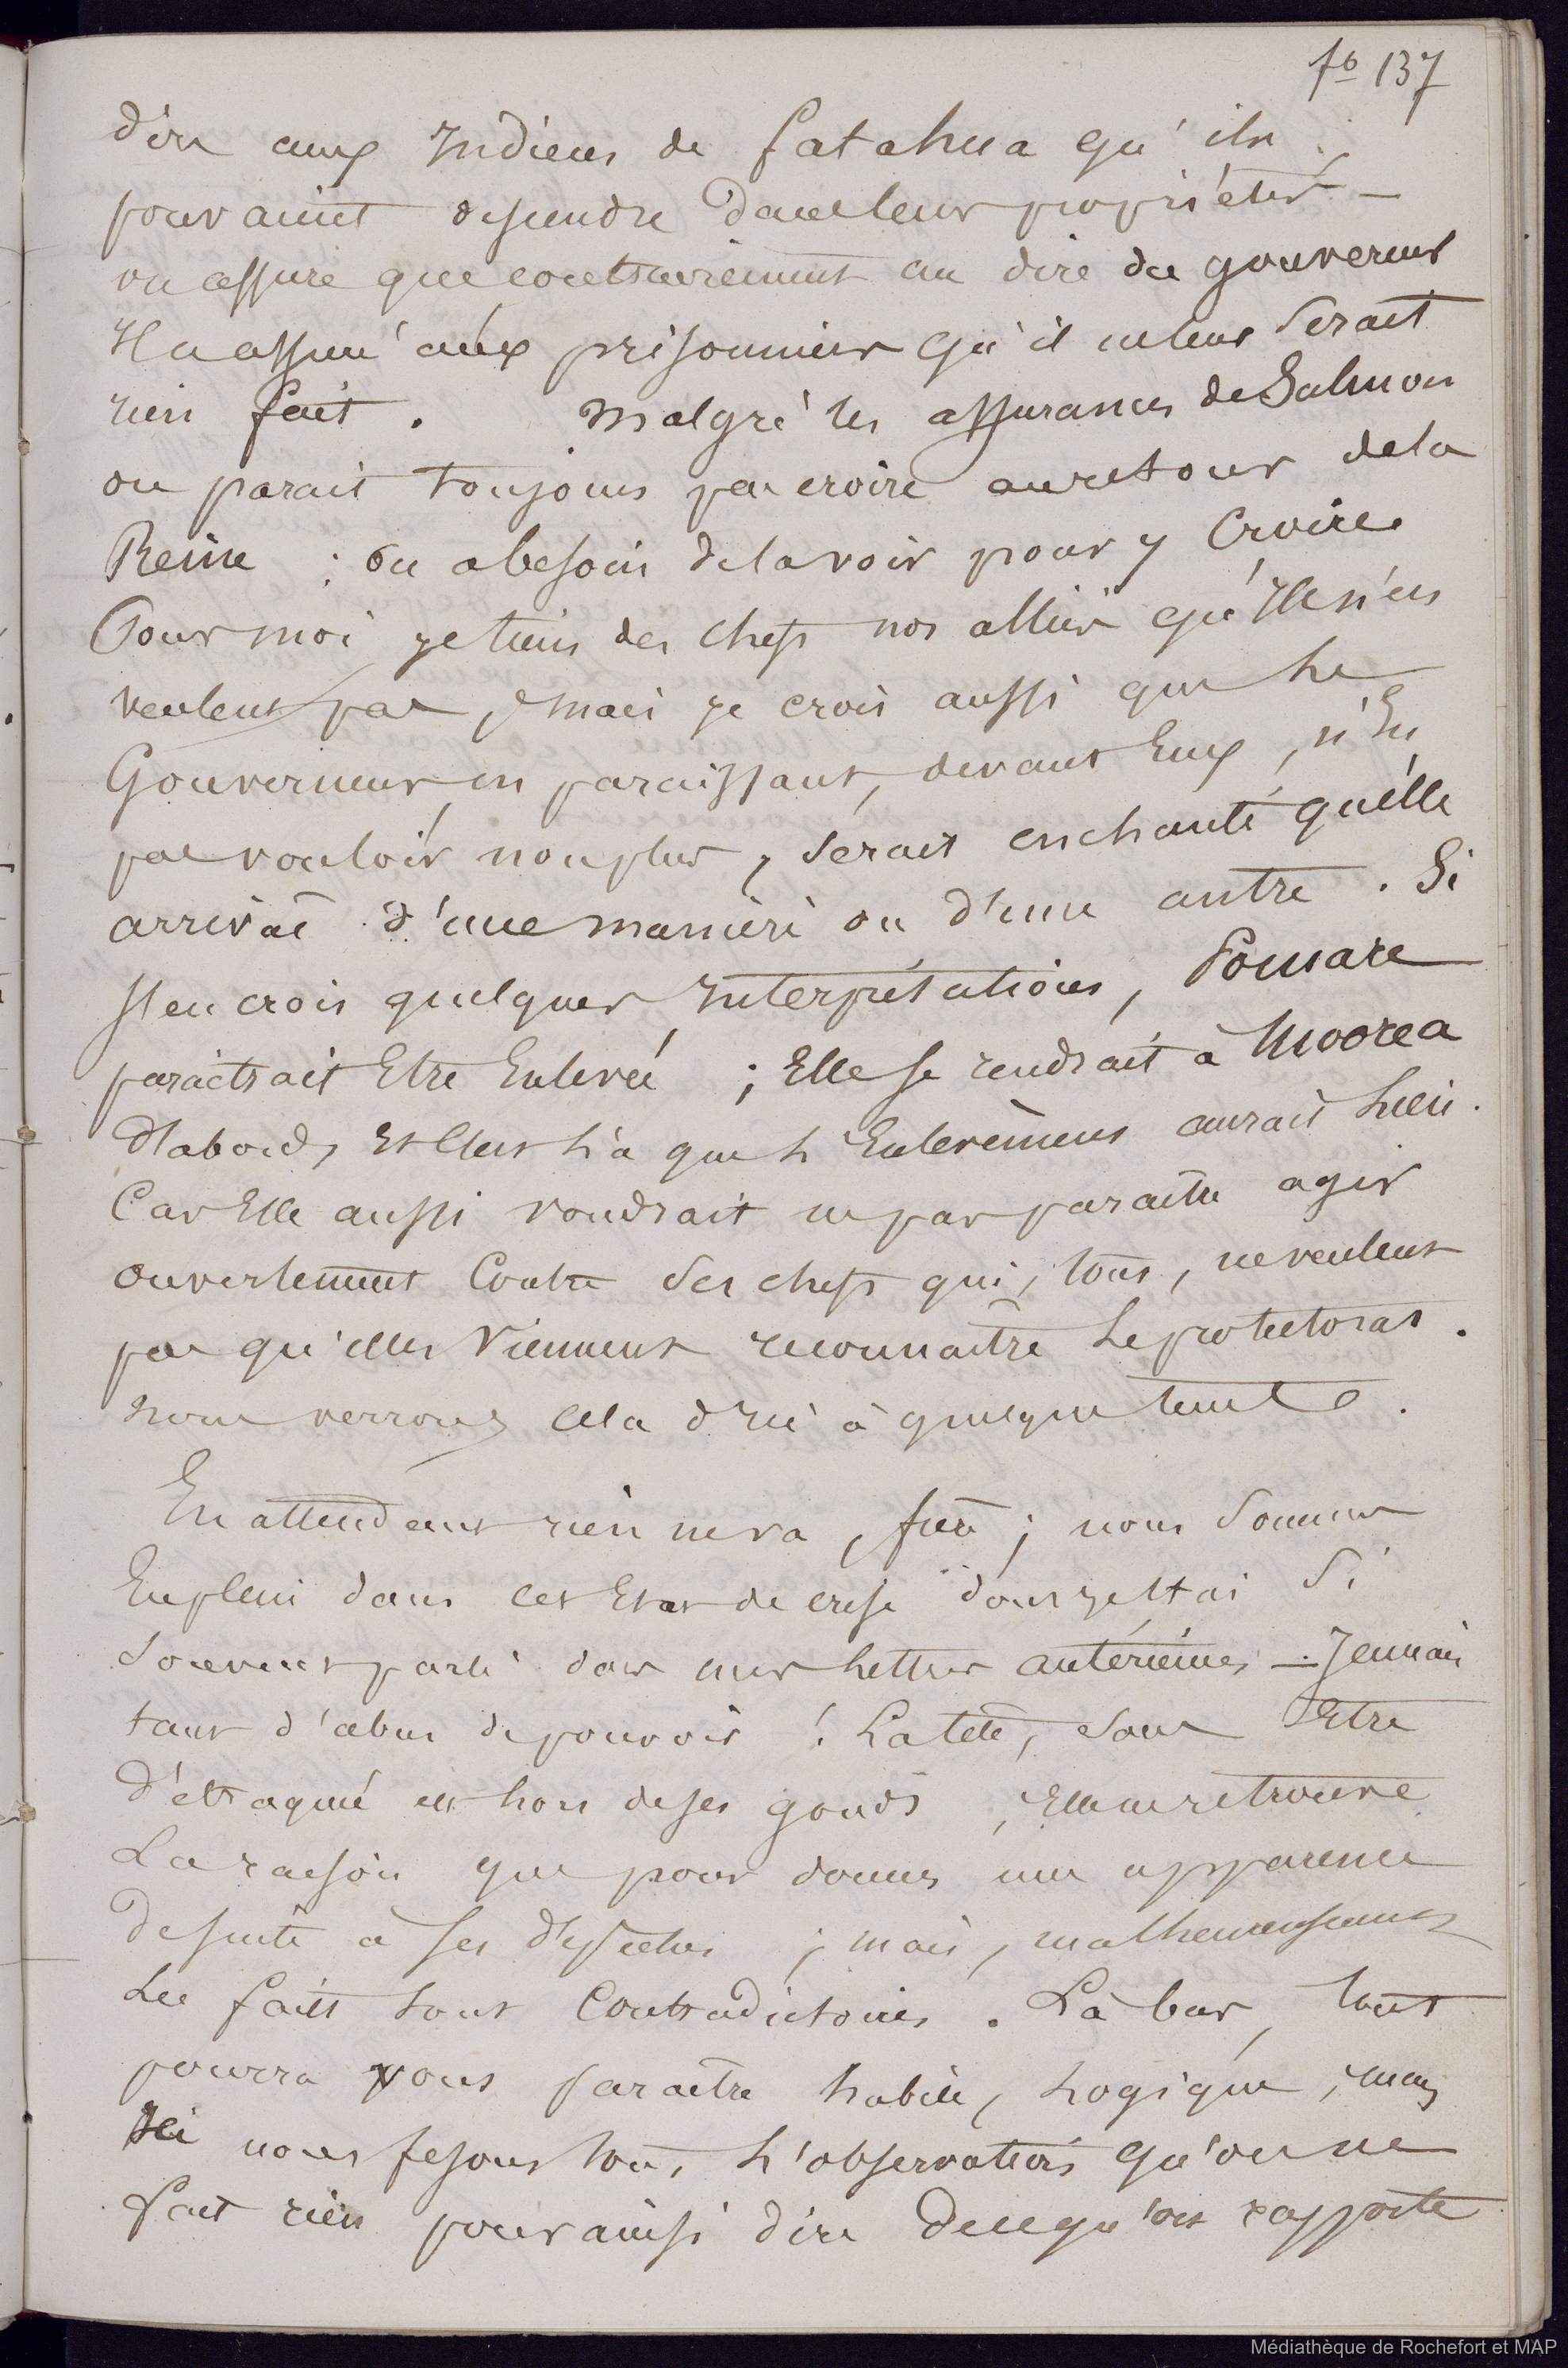 fo 137
dire aux Indiens de fatahua qu'ils
pouvaient descendre dans leurs propriétés —
on assure que contrairement au dire du gouverneur
Il a assuré aux prisonniers qu'il ne leur serait
rien fait. Malgré les assurances de Salmon
on parait toujours peu croire au retour de la
Reine ; on a besoin de la voir pour y croire.
Pour moi je tiens des chefs nos alliés qu'Ils n'en
veulent pas, mais je crois aussi que le
Gouverneur en paraissant, devant Eux, n'En
pas vouloir non plus, serait enchanté qu'elle
arrivât d'une manière ou d'une autre. Si
J'en crois quelques Interprétations, Pomare
paraitrait Etre Enlevée ; Elle se rendrait à Moorea
D'abord, Et C'est là que l'Enlevement aurait Lieu.
Car Elle aussi voudrait ne pas paraitre agir
ouvertement Contre ses chefs qui, tous, ne veulent
pas qu'elle Viennent reconnaitre Le protectorat.
nous verrons cela d'Ici à quelque temps.
En attendant rien ne va, ; nous sommes
En plein dans cet Etat de crise dont je t'ai si
souvent parlé dans mes Lettres antérieures — Jamais
tant d'abus de pouvoir ! La tête, sans Etre
détraquée est hors de ses gonds, Elle ne retrouve
La raison que pour donner une apparence
de suite à ses ; mais, malheureusement
Les faits sont Contradictoires. Là bas, tout
pourra vous paraitre habile, Logique, mais
Ici nous fesons tous L'observation qu'on ne
fait rien pour ainsi dire De ce qu'on rapporte
Médiathèque de Rochefort et MAP